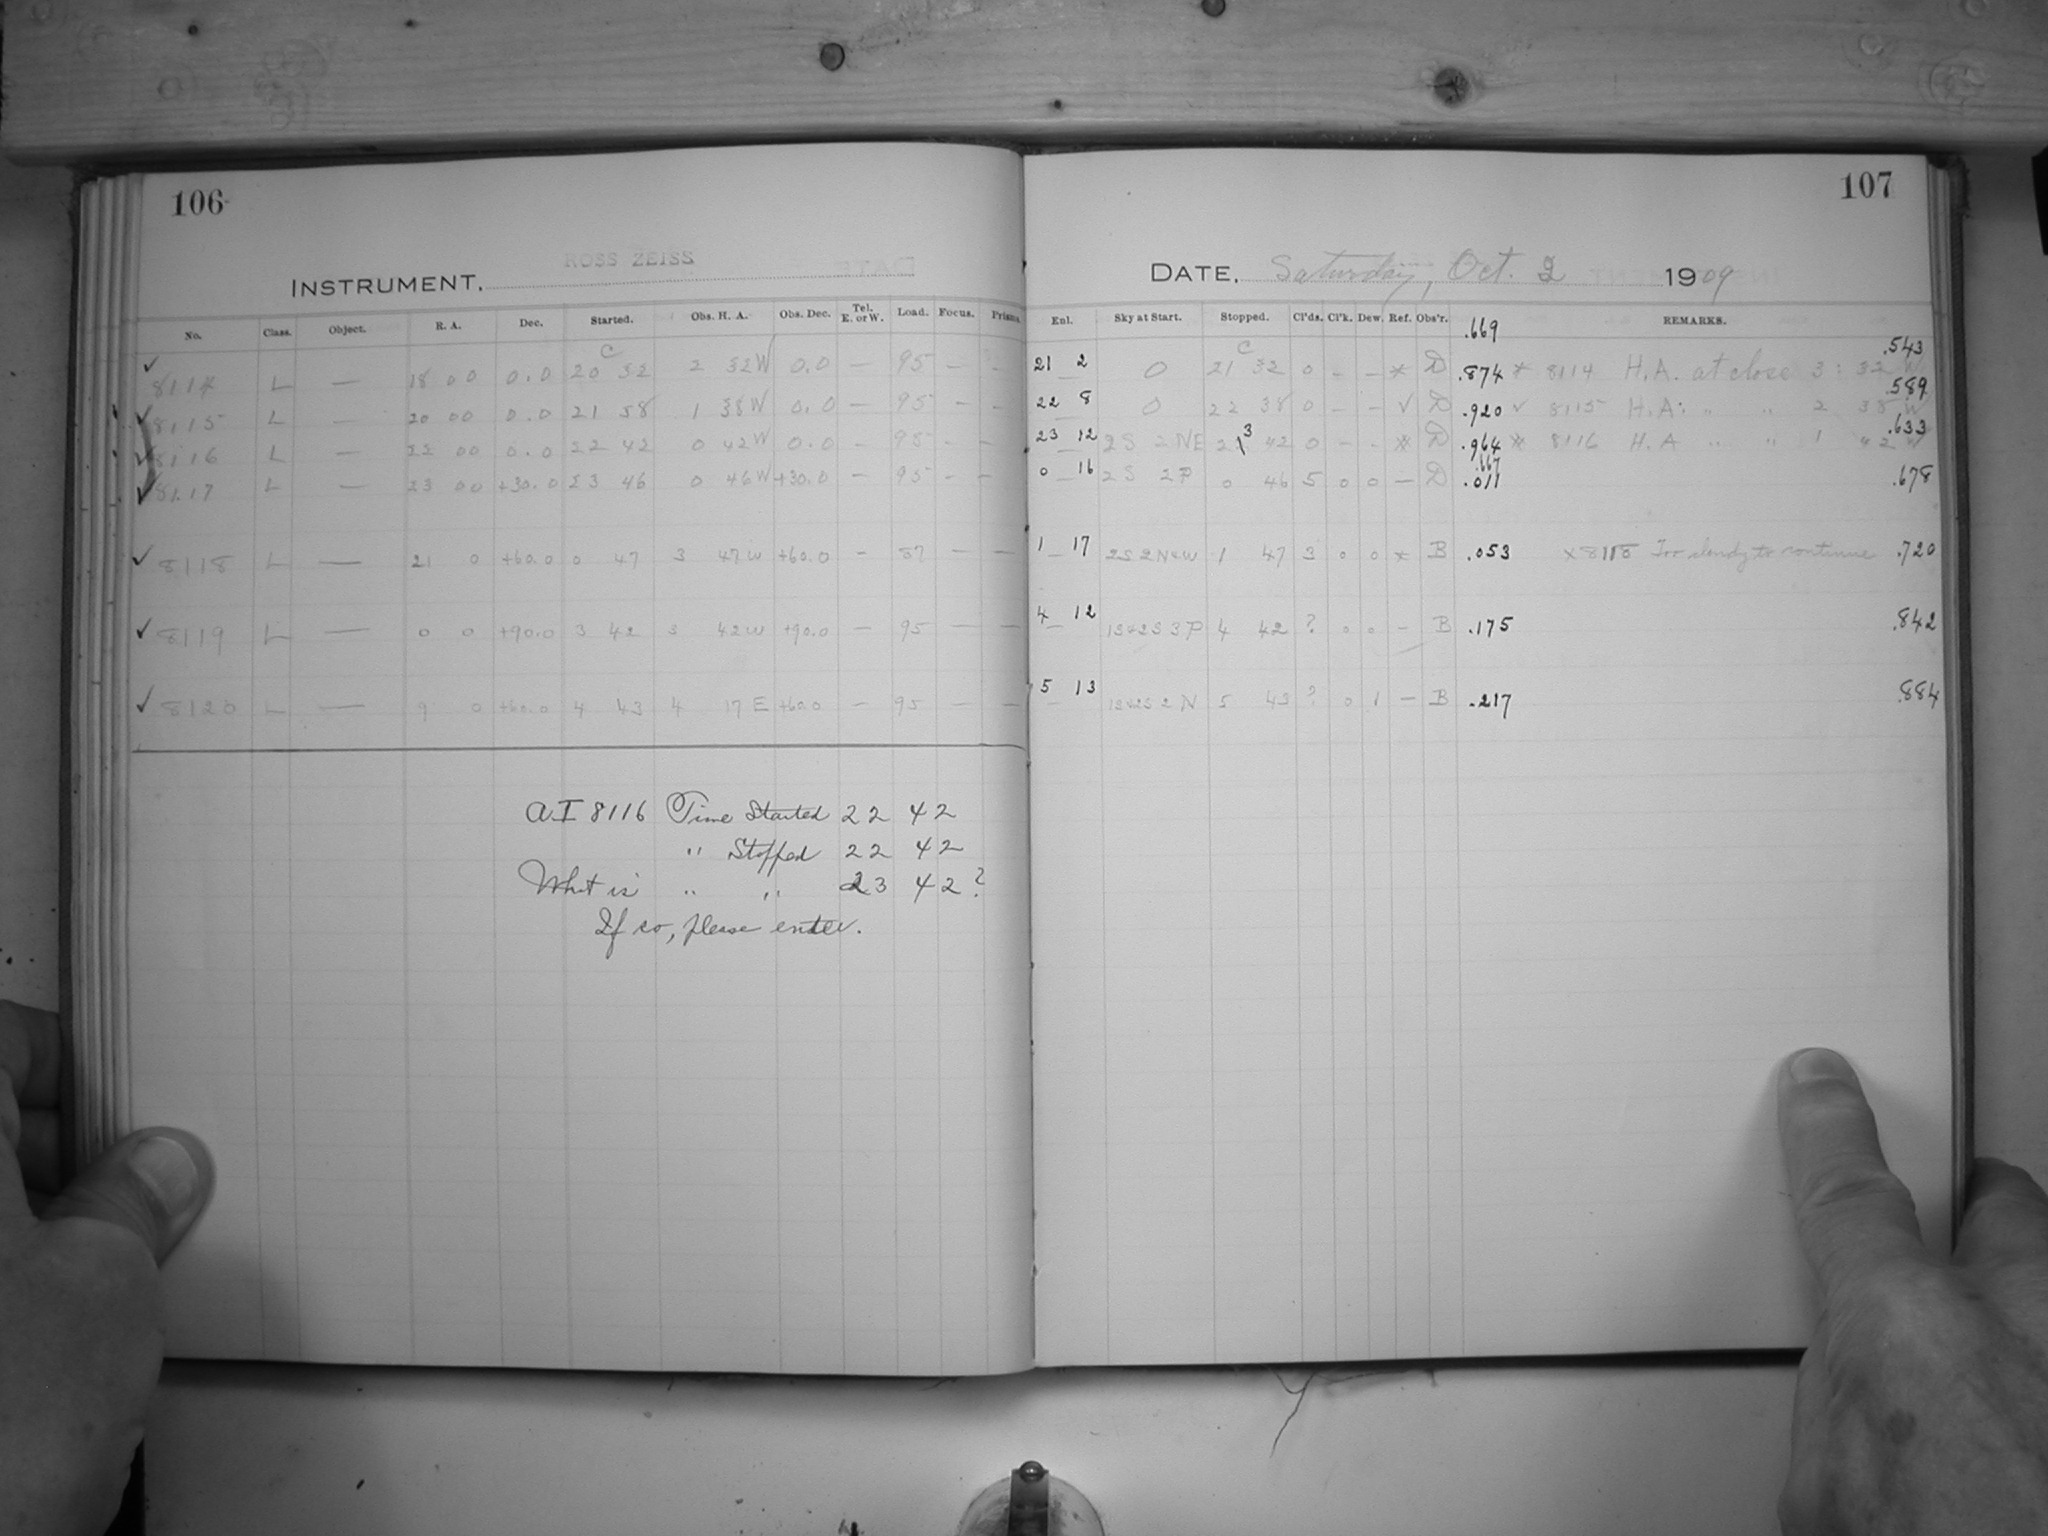 106
ROSS ZEISS
INSTRUMENT.
No. Class. Object. R. A. Dec. Started. Obs. H. A. Obs. Dec. Tel. E. or W. Load. Focus. Prisms.
✓ 8114 L — 18 00 0.0 20 C 32 2 32 W 0.0 — 95 — -
✓ 8115 L — 20 00 0.0 21 58 1 38 W 0.0 — 95 — -
✓ 8116 L — 22 00 0.0 22 42 0 42 W 0.0 — 95 - -
✓ 8117 L — 23 00 +30.0 23 46 0 46 W +30.0 — 95 - -
✓ 8118 L — 21 0 +60.0 0 47 3 47 W +60.0 — 87 — —
✓ 8119 L — 0 0 +90.0 3 42 3 42 W +90.0 — 95 — —
✓ 8120 L — 9 0 +60.0 4 43 4 17 E +60.0 — 95 — —
A.I 8116 Time Started 22 42
" Stopped 22 42
What is " " 23 42?
If so, please enter.
107
DATE. Saturday, Oct. 2 1909
Enl. Sky at Start. Stopped. Cl'ds. Cl'k. Dew. Ref. Obs'r. .669 REMARKS.
.543
21 2 0 21 C 32 0 - - * D .874 * 8114 H.A. at close 3 : 32 W
.589
22 8 0 22 38 0 - - ✓ D .920 ✓ 8115 H.A. " " 2 38 W
.633
23 12 2S 2NE 23 42 0 - - * D .964 * 8116 H.A " " 1 42 W
.667
0 16 2S 2P 0 46 5 0 0 — D .011 .678
1 17 2S 2N+W 1 47 3 0 0 * B .053 × 8118 Too cloudy to continue .720
4 12 1S+2S 3P 4 42 ? 0 0 - B .175 .842
5 13 1S+2S 2N 5 43 ? 0 1 — B .217 .884